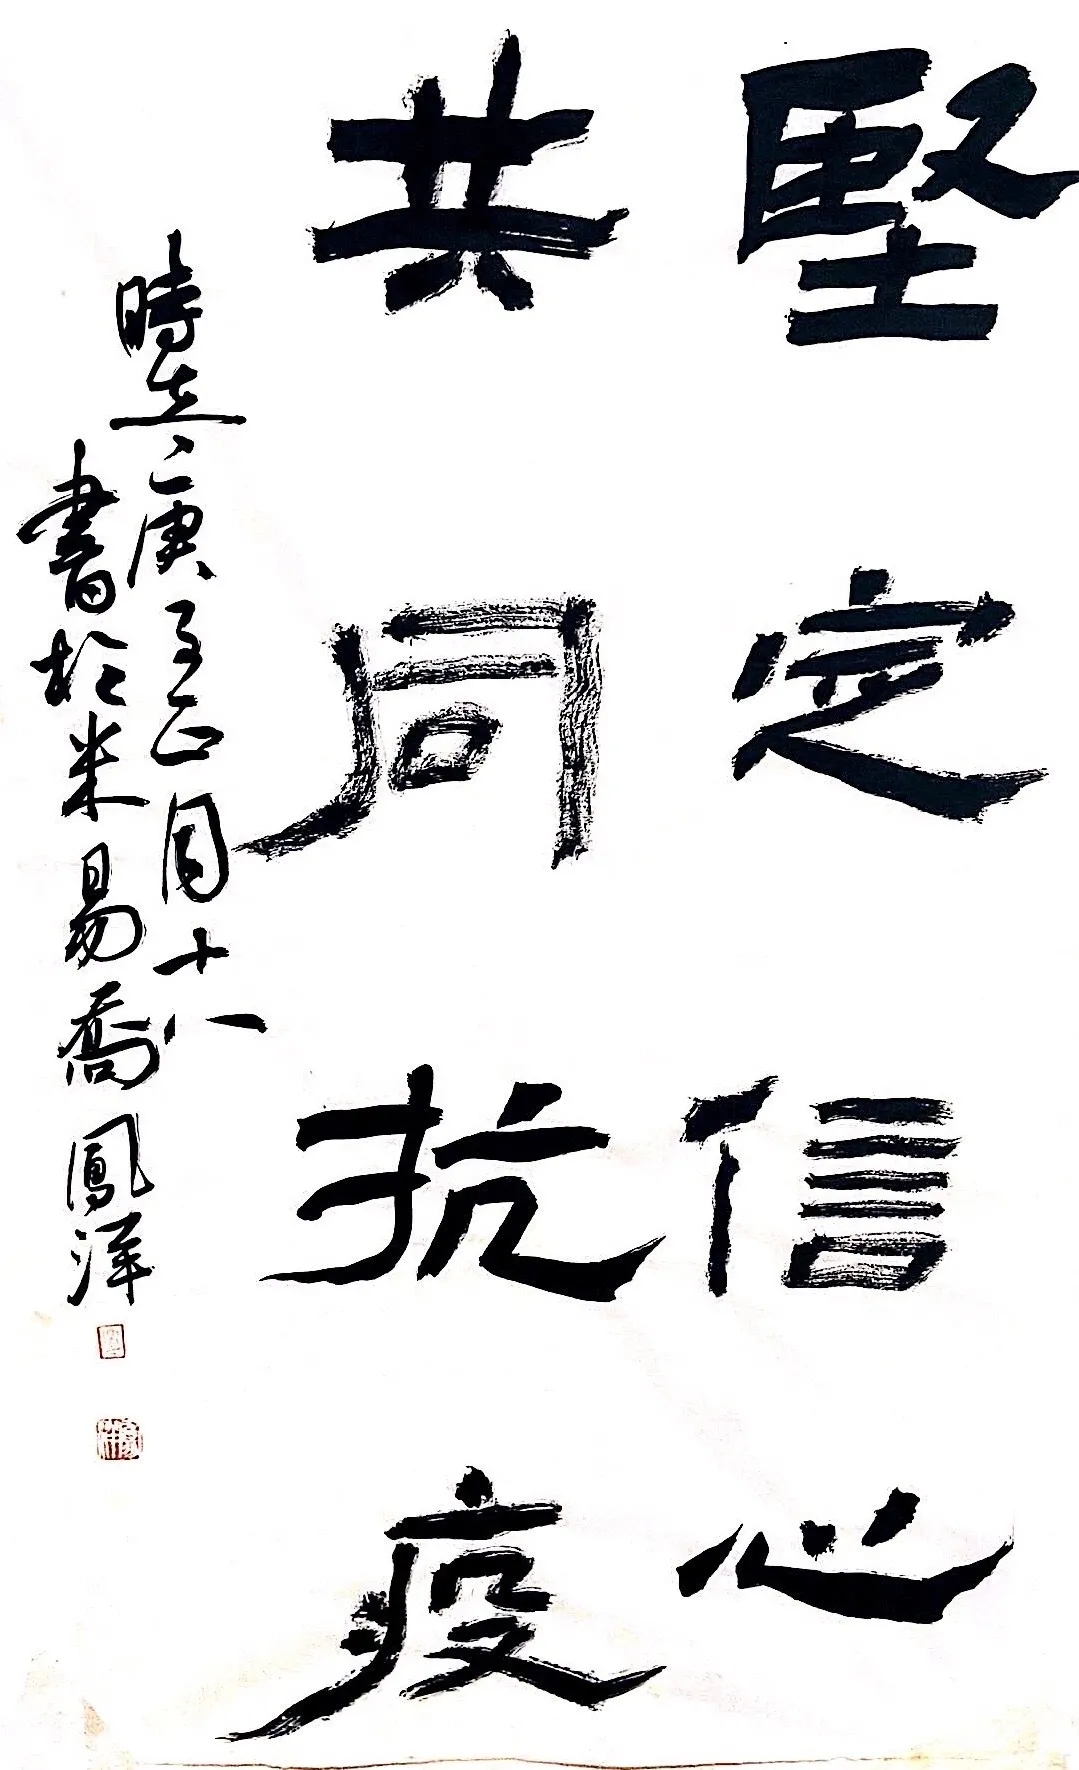 堅定信心
共同抗疫
時在庚子正月十八
書於米易喬鳳洋